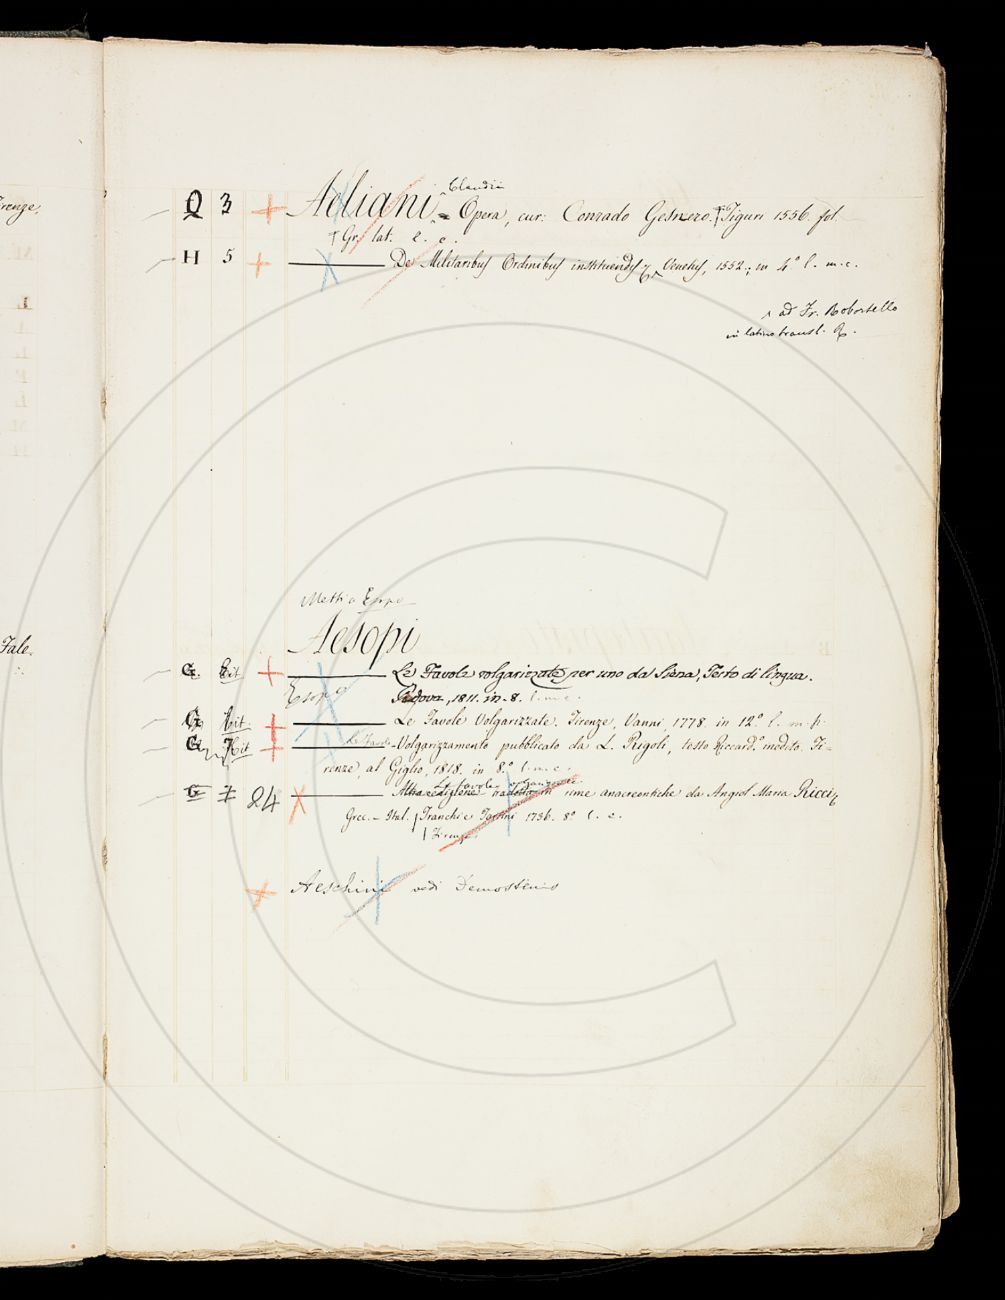 Firenze.
Claudii
Q 3 Aeliani = Opera, cur: Conrado Gesnero. Tiguri 1556. fol.
Gr. lat. l. c.
H 5 De Militaribus Ordinibus instituendis Venetiis, 1552. in 4.º l. m. c.
ad Fr. Robortello
in latino transl.
Esopo
Aesopi
Fale.
G. Cit Le Favole volgarizzate per uno da Siena, Testo di lingua.
Esopo Padova, 1811. in-8. l. m. c.
G Cit. Le Favole Volgarizzate. Firenze, Vanni, 1778. in 12.º l. m. p.
G. Cit Le Favole Volgarizzamento pubblicato da L. Rigoli, testo Riccard.º inedito. Fi=
renze, al Giglio, 1818. in 8.º l. m. c.
Le favole volgarizzate
G 7 24 in rime anacreontiche da Angiol Maria Ricci
Grec. - Ital. Franchi e Tartini 1736. 8º l. c.
Firenze
Aeschini vedi Demostenis